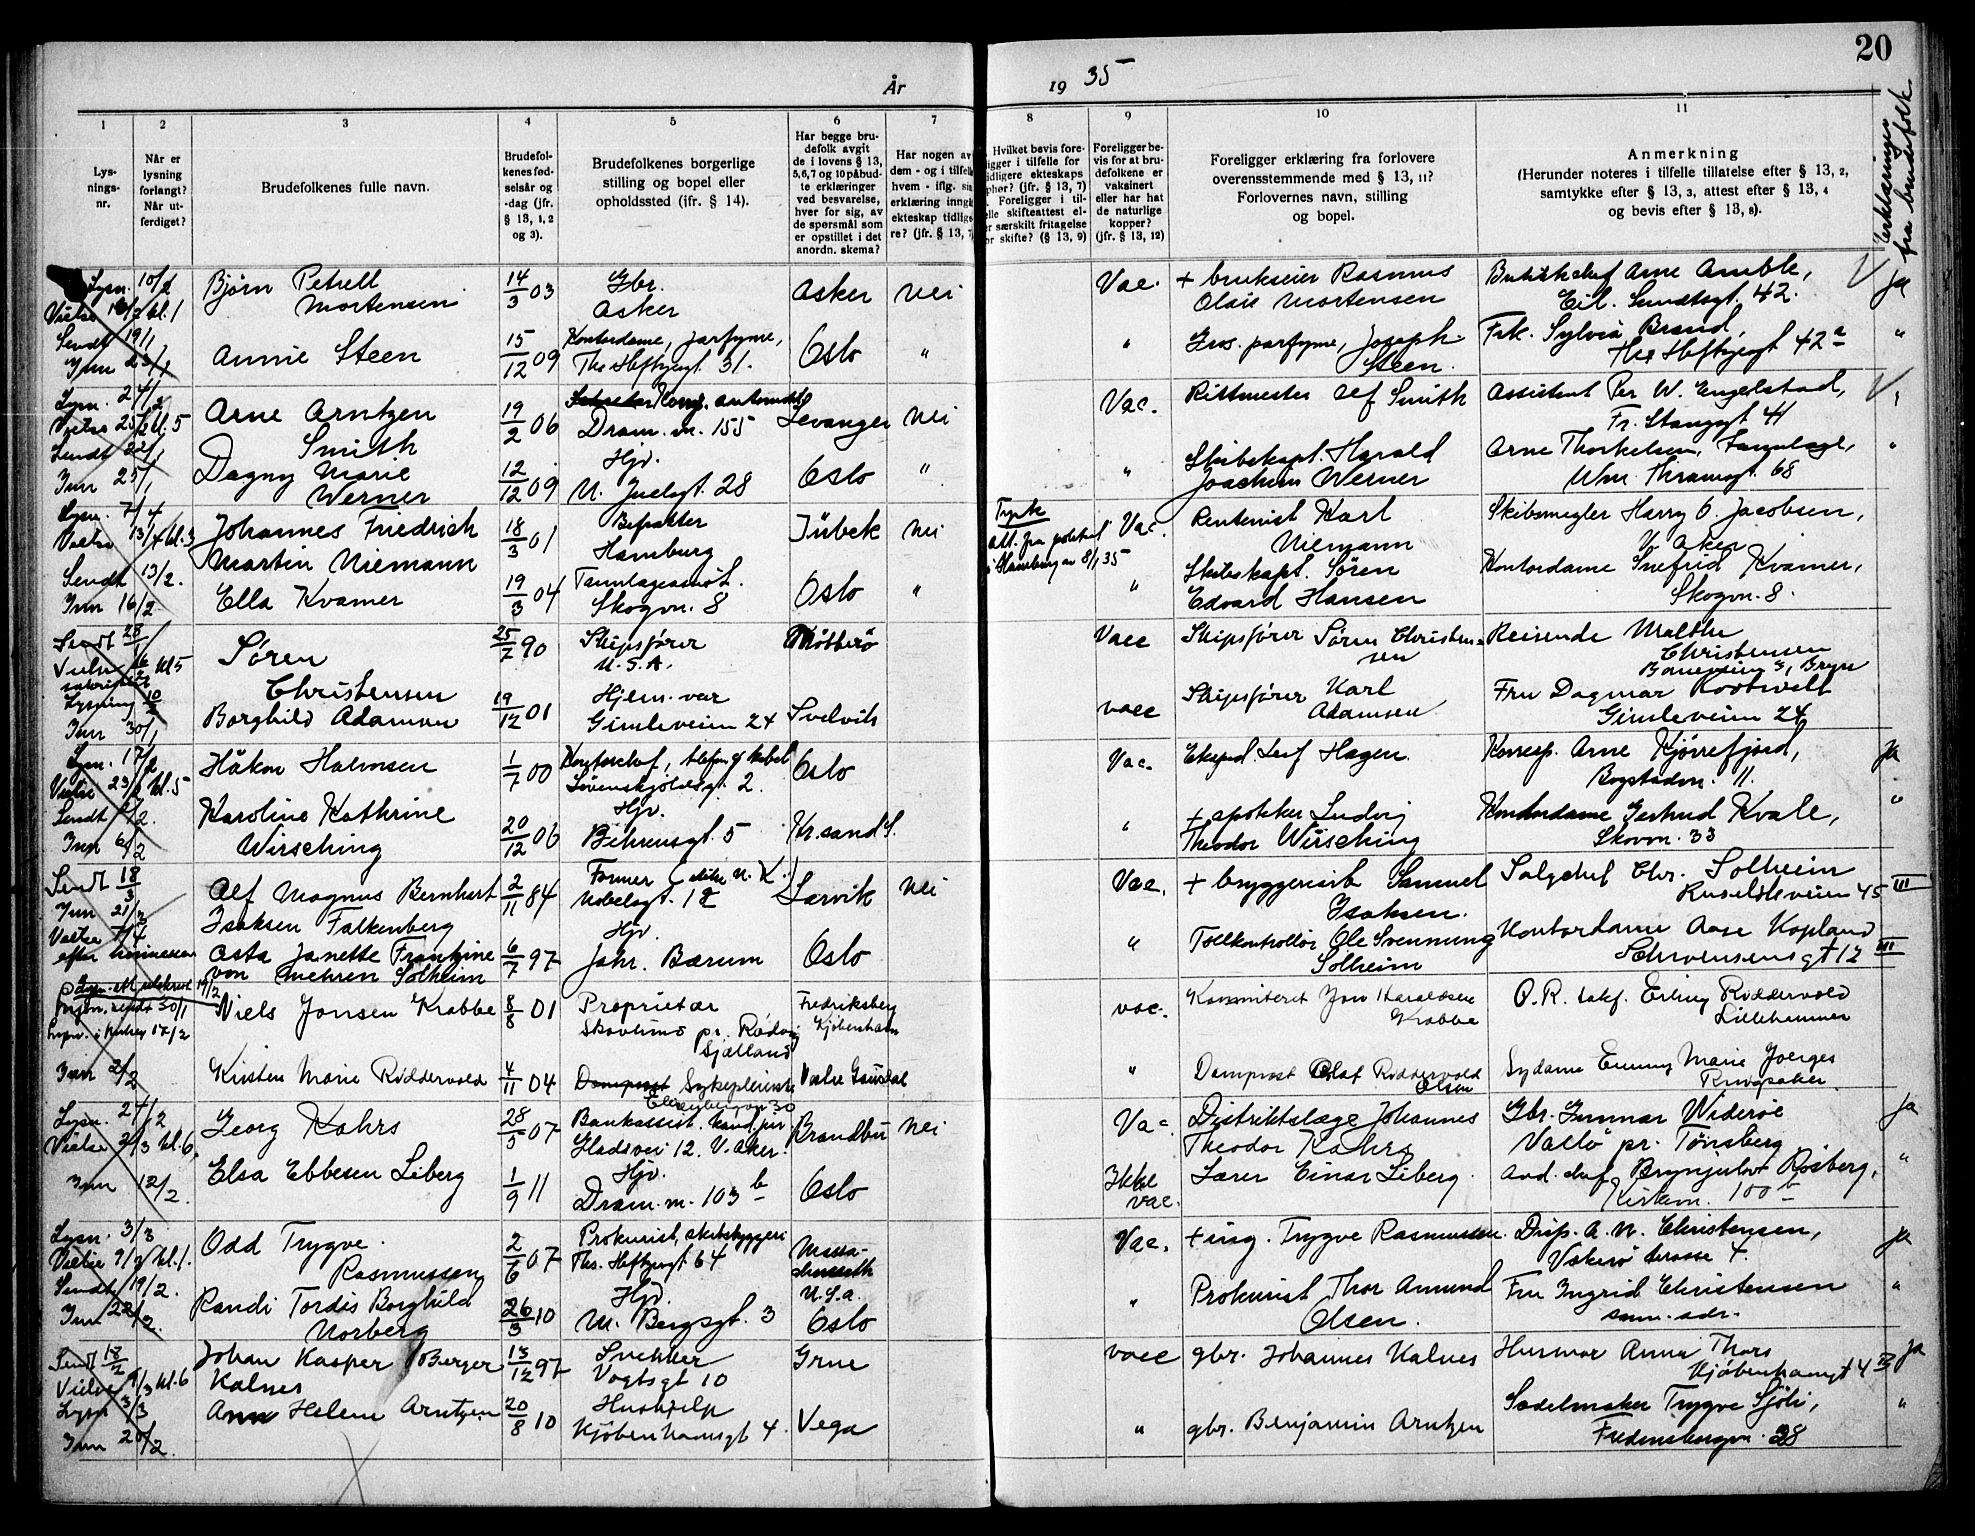 20
År
19 35
Erklæringer fra brudefolk
1
2
3
4
5
6
7
8
9
10
11
Lys-
nings-
nr.
Når er
lysning
forlangt?
Når ut-
ferdiget?
Brudefolkenes fulle navn.
Brudefol-
kenes fød-
selsår og
-dag (jfr.
§ 13, 1, 2
og 3).
Brudefolkenes borgerlige
stilling og bopel eller
opholdssted (ifr. § 14).
Har begge bru-
defolk avgit
de i lovens § 13,
5, 6, 7 og 10 påbud-
te erklæringer
ved besvarelse,
hver for sig, av
de spørsmål som
er opstillet i det
anordn. skema?
Har nogen av
dem - og i tilfelle
hvem - iflg. sin
erklæring inngå
ekteskap tidlige-
re? (jfr. § 13, 7)
Hvilket bevis fore-
ligger i tilfelle for
tidligere ekteskaps
ophør? (jfr. § 13, 7)
Foreligger i til-
felle skifteattest el-
er særskilt fritagelse
for skifte? (§ 13, 9)
Foreligger be-
vis for at bru-
defolkene er
vaksinert
eller har hat
de naturlige
kopper?
(jfr. § 13, 12)
Foreligger erklæring fra forlovere
overensstemmende med § 13, 11?
Forlovernes navn, stilling
og bopel.
Anmerkning
(Herunder noteres i tilfelle tillatelse efter § 13, 2,
samtykke efter § 13, 3, attest efter § 13, 4
og bevis efter § 13, 8).
Lysn. 10/2
Bjørn Petrell
Mortensen
14/3 03
Gbr.
Asker
Asker
Nei
Vac.
+ brukseier Rasmus
Olaie Mortensen
Butikkchef Arne Amble,
Eil. Sundtsgt. 42.
Ja
Sendt 19/1
Inn 23/1
Annie Steen
15/12 09
Kontordame, parfyme,
Ths Heftyesgt 31.
Oslo
"
"
Gros. parfyme, Joseph
Steen.
Frk. Sylvia Brand,
Ths Heftyesgt 42a
"
Lysn. 24/2
Vielse 25/2 kl. 5
Arne Arntzen
Smith
19/2 06
Dram. v. 155
Levanger
Nei
Vac.
Rittmester Alf Smith
Assistent Per W. Engelstad,
Fr. Stangsgt 41
Sendt 22/1
Inn 25/1
Dagny Marie
Werner
12/12 09
Hjv.
N. Juelsgt. 28
Oslo
"
"
Skibskapt. Harald
Joachim Werner
Arne Thorkelsen, Tannlæge,
Wm. Thranesgt. 68
"
Lysn. 7/4
Vielse 13/4 kl. 3
Johannes Friedrich
Martin Niemann
18/3 01
Befrakter
Hamburg
Lübek
Nei
Tysk
att. fra politiet
i Hamburg av 8/1 35
Vac.
Rentenist Karl
Niemann
Skibsmegler Harry O. Jacobsen,
V. Aker
Sendt 13/2.
Inn 16/2
Ella Kvamer
19/3 04
Tannlægeassist.
Skogvn. 8
Oslo
"
"
Skibskapt. Søren
Edvard Hansen
Kontordame Snefrid Kvamer,
Skogvn. 8.
Sendt 28/1
Søren
Christensen
25/7 90
Skipsfører
U.S.A.
Vacc
Skipsfører Søren Christen-
sen
Reisende Malthe
Christensen
Baneveien 3, Bryn
Lysning 10/2
Inn 30/1
Borghild Adamsen
19/12 01
Hjem. vær
Gimleveien 24
Svelvik
vacc
Skipsfører Karl
Adamsen
Fru Dagmar Rootwelt
Gimleveien 24
Lysn. 17/2
Vielse 23/2 kl. 5
Håkon Halvorsen
1/7 00
Løvenskjoldsgt. 2.
Oslo
Vac.
Eksped. Leif Hagen.
Korresp. Arne Kjørrefjord,
Bogstadvn. 11.
Ja
Sendt
Inn 6/2
Karoline Kathrine
Wirsching
20/12 06
Hjv.
Behrensgt. 5
Kr.sand S.
"
+ apoteker Ludvig
Theodor Wirsching
Kontordame Gertrud Kvale,
Skovvn. 33
"
Sendt 18/3
Inn 21/3
Vielse 7/4
Alf Magnus Bernhart
Isaksen Falkenberg
2/11 84
Former
Nobelsgt. 18
Larvik
Nei
Vac.
+ bryggeriarb Samuel
Isaksen.
Salgschef Chr. Solheim
Ruseløkveien 45 III
efter høimessen
Asta Janette Frantzine
von Mehren Solheim
6/7 97
Hjv.
Jahr. Bærum
Oslo
"
Tollkontrollør Ole Svenning
Solheim
Kontordame Aase Kopland
Schwensensgt 12 III
Niels Jonsen Krabbe
8/8 01
Proprietær
pr. Rødvig
Sjælland
Fredriksberg
Kjøbenhavn
vac.
Kommiteret Jon Haraldsen
Krabbe
O.R. sakf. Erling Riddervold
Lillehammer
Inn 2/2
Kirsten Marie Riddervold
4/11 04
Domprost Sykepleierske
Vestre Gausdal
"
Domprost Olaf Riddervold
Olsen
Sydame Emmy Marie Joerges
Ringsaker.
Lysn. 24/2
Vielse 2/3 kl. 6
Georg Kahrs
28/5 07
Bankassist. kand. jur
Gladsvei 12, V. Aker.
Brandbu
Nei
Vac.
Distriktslæge Johannes
Theodor Kahrs
Gbr. Gunnar Widerøe
Vallø pr. Tønsberg
Ja
Inn 12/2.
Elsa Ebbesen Liberg
1/9 11
Hjv.
Dram. v. 103 b
Oslo
Ikke
vac.
Lærer Einar Liberg.
Avd. chef Brynjulv Rosberg,
Kirkevn. 100 b
"
Lysn. 3/3
Vielse 9/3 kl. 1.
Odd Trygve
Rasmussen
2/6 07
Prokurist, skibsbyggeri
Ths. Heftyesgt 64
Massa-
chusseth
U.S.A.
Vac.
+ ing. Trygve Rasmussen.
Disp. A. N. Christensen,
Vækerø terasse 4.
Ja
Sendt 19/2.
Inn 22/2.
Randi Tordis Borghild
Norberg
26/3 10
Hjv.
M. Bergsgt. 3
Oslo
"
Prokurist Thor Amund
Olsen.
Fru Ingrid Christensen
sam. adr.
"
Sendt 18/2
Vielse 9/3 kl. 6
Johan Kasper Berger
Kalnes
13/12 97
Snekker
Vogtsgt 10
Grue
vacc
gbr. Johannes Kalnes
Husmor Anna Thors
Kjøbenhavngt 4 III
Ja
Lysn 3/3
Inn 20/2.
Ann Helene Arntzen
20/8 10
Hushjelp
Kjøbenhavnsgt 4.
Vega
"
gbr. Benjamin Arntzen
Sadelmaker Trygve Sjøli,
Fredensborgvn. 28
"